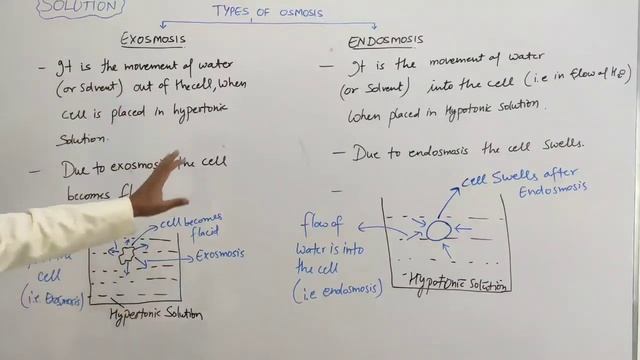 SOLUTION
TYPES OF OSMOSIS
EXOSMOSIS
- It is the movement of water
(or solvent) out of the cell, when
cell is placed in hypertonic
Solution.
- Due to exosmosis the cell
becomes
cell becomes
flacid
Exosmosis
cell
(i.e Exosmosis)
Hypertonic Solution
ENDOSMOSIS
- It is the movement of water
(or Solvent) into the cell (i.e in flow of H2O)
when placed in Hypotonic Solution.
- Due to endosmosis the cell Swells.
-
cell Swells after
Endosmosis
flow of
water is into
the cell
(i.e endosmosis)
Hypotonic Solution